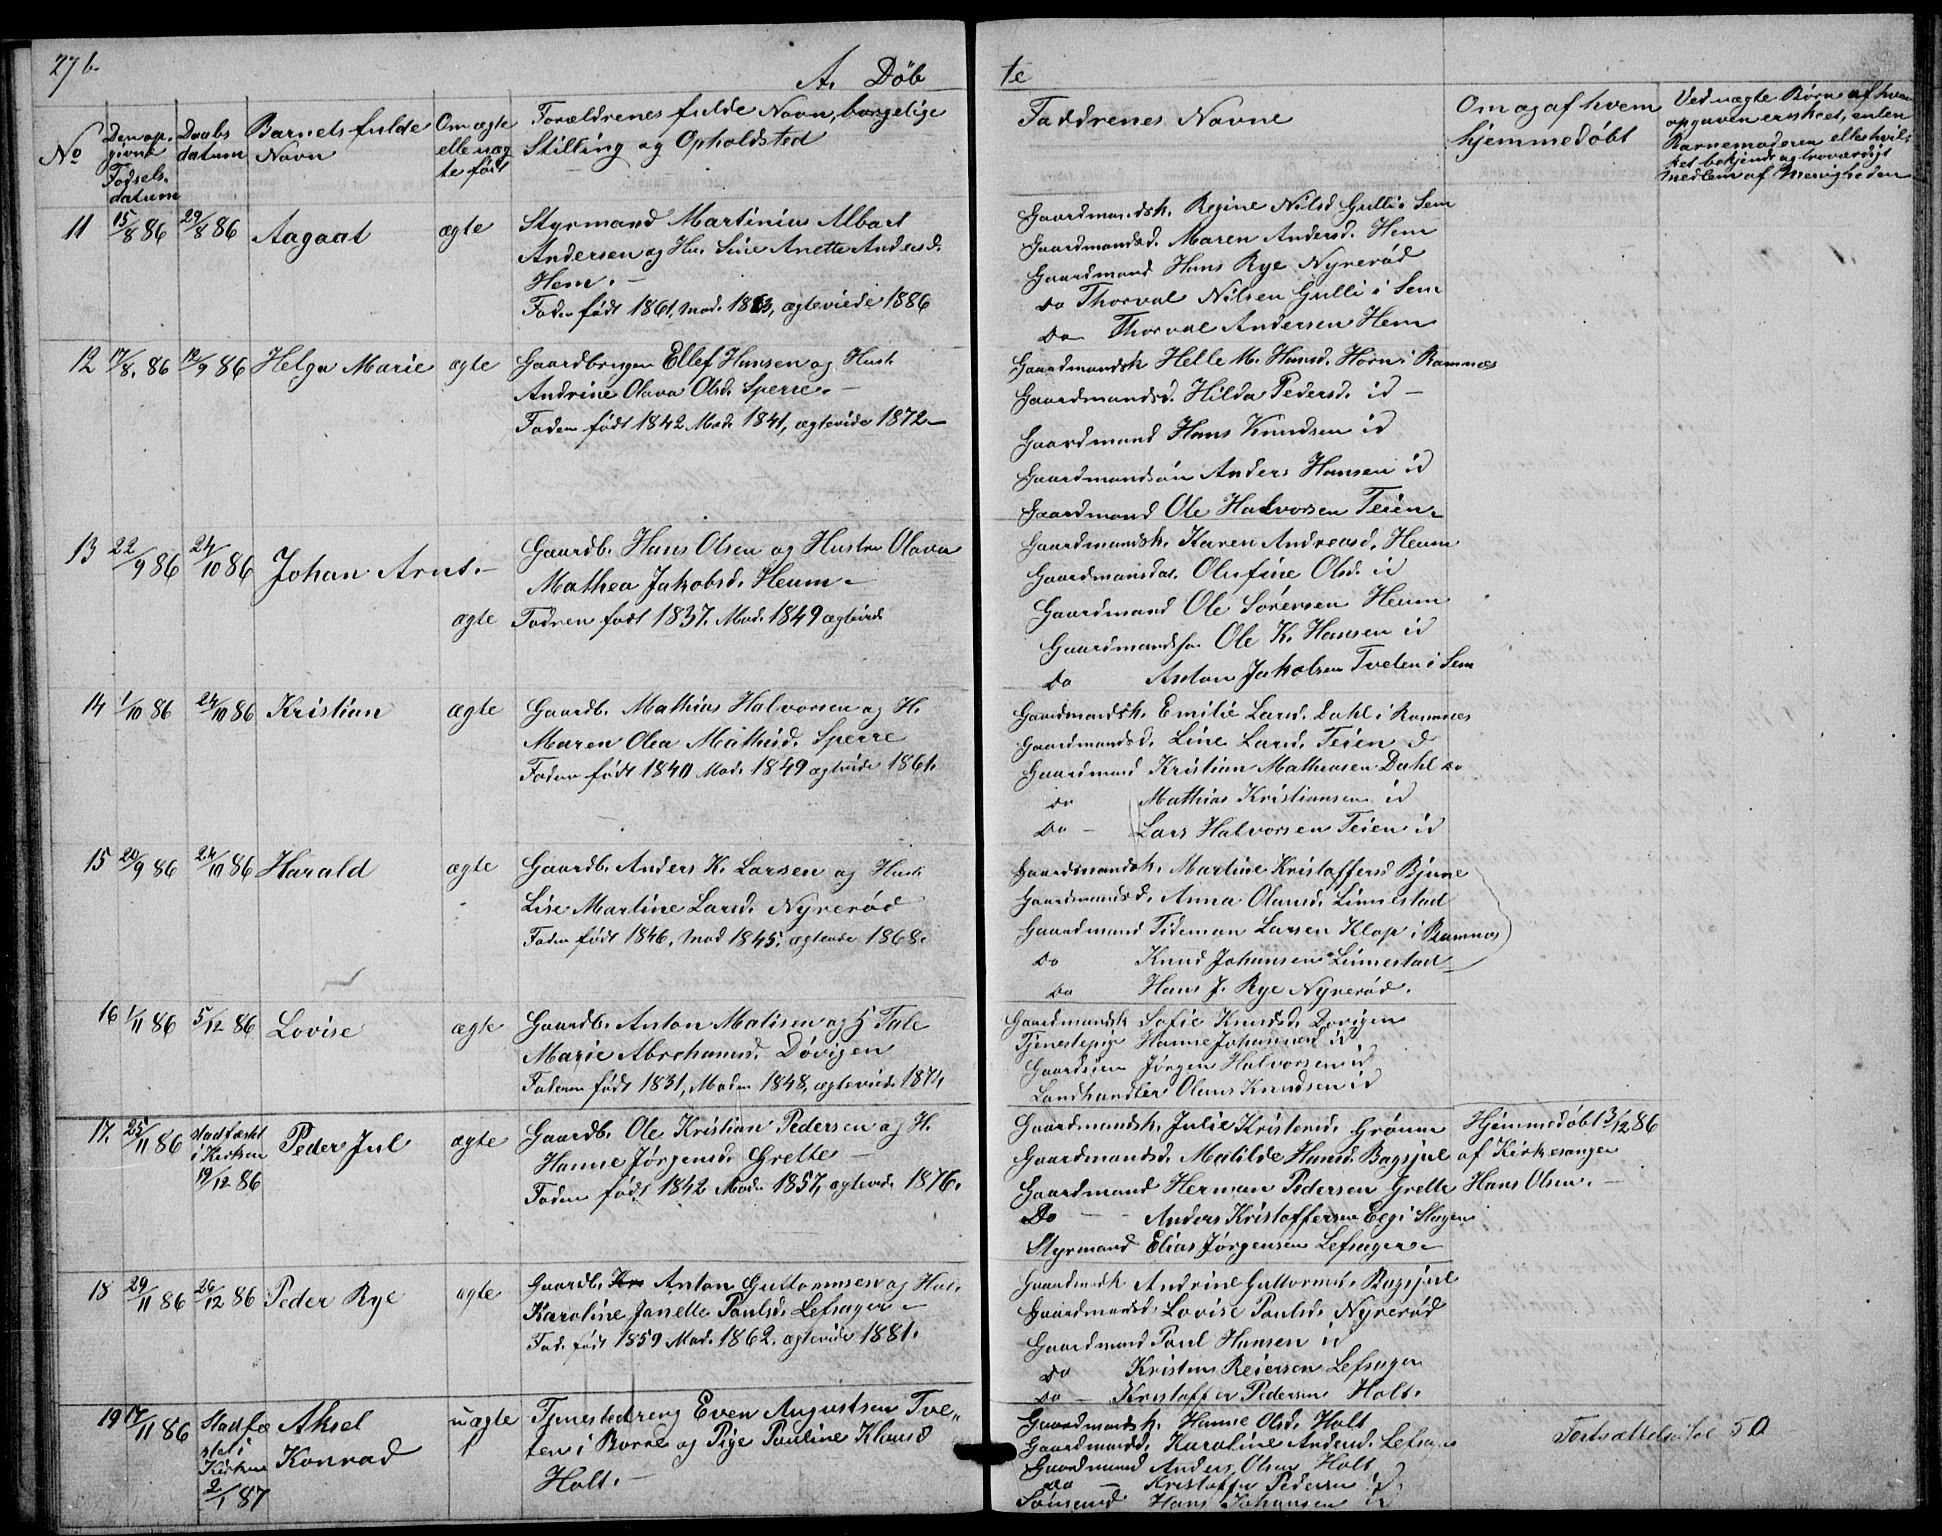 27b.
A. Döb
te
No
Den op-
givne
Fødsels-
datum
Daabs
datum
Barnets fulde
Navn
Om ægte
elle uæg
te født
Forældrenes fulde Navn, borgelige
Stilling og Opholdsted
Faddrenes Navne
Om og af hvem
hjemmedøbt
Ved uægte Børn af hvem
opgaven er skeet, enten
Barnemoderen eller hvil-
ket bekjendt og troværdigt
medlem af Menigheden
11 15/8 86 29/8 86 Aagaat ægte
Styrmand Martinius Albart
Andersen og Hu. Line Anette Andersd.
Hem. -
Faden født 1861, Mod. 1863, ægteviede 1886
Gaardmandsk. Regine Nilsd Gulli i Sem
Gaardmandsd. Maren Andersd. Hem
Gaardmand Hans Rye Nyrerød
Do Thorval Nilsen Gulli i Sem
Do Thorval Andersen Hem
12 17/8. 86 12/9 86 Helga Marie ægte
Gaardbruger Ellef Hansen og Hust.
Andrine Olava Olsd. Sperre. -
Faden født 1842 Mod. 1841, ægtevide 1872 -
Gaardmandsk Helle M. Hansd. Horn i Ramnæs
Gaardmandsd. Hilda Pedersd. id -
Gaardmand Hans Knudsen id
Gaardmandsøn Anders Hansen id
Gaardmand Ole Halvorsen Teien -
13 22/9 86 24/10 86 Johan Arnt. - ægte
Gaardb. Hans Olsen og Hustru Olava
Mathea Jakobsd. Heum -
Fadren født 1837. Mod. 1849 ægtevide
Gaardmandsk. Karen Andreasd. Heum
Gaardmansdat. Olufine Olsd. id
Gaardmand Ole Sørensen Heum
Gaardmandsøn Ole K. Hansen id
Do Anton Jakobsen Tveten i Sem
14 1/10 86 24/10 86 Kristian ægte
Gaardb. Mathias Halvorsen og H.
Maren Olea Mathisd. Sperre
Faden født 1840 Mod. 1849 ægtevide 1861.
Gaardmandsk. Emilie Larsd. Dahl i Ramnæs
Gaardmandsd. Line Larsd. Teien d
Gaardmand Kristian Mathiasen Dahl do
Do Mathias Kristiansen id
Do - Lars Halvorsen Teien id
15 20/9 86 24/10 86 Harald ægte
Gaardb. Anders K. Larsen og Hust.
Lise Martine Larsd. Nyrerød
Faden født 1846, Mod 1845. ægtevide 1868.
Gaardmandsk. Martine Kristoffersd Bjune
Gaardmandsd. Anna Olausd. Linnestad
Gaardmand Tideman Larsen Klop i Ramnæs
Do Knud Johansen Linnestad
Do Hans J. Rye Nyrerød.
16 1/11 86 5/12 86 Lovise ægte
Gaardb. Anton Matisen og H Tale
Marie Abrahamsd. Døvigen
Faderen født 1831, Moden 1848, ægteviede 1874
Gaardmandsk Sofie Knudsd. Dovigen
Tjenestepige Hanne Johannesd id
Gaardsøn Jørgen Halvorsen id
Landhandler Olaus Knudsen id
17. 25/11 86 stadfæstet
i Kirken
19/12 86 Peder Jul ægte
Gaardb. Ole Kristian Pedersen og H.
Hanne Jørgensd. Grette -
Faden født 1842 Mod. 1857, ægtevide 1876.
Gaardmandsk. Julie Kristensd. Grønnn
Gaardmandsd. Matilde Hansd. Bagsjul
Gaardmand Herman Pedersen Grette
Do - - Anders Kristoffersen Eeg i Slagen
Styrmand Elias Jørgensen Lefsager -
Hjemmedøbt 3/12 86
af Kirkesanger
Hans Olsen. -
18 29/11 86 26/12 86 Peder Rye ægte
Gaardb. Kr Anton Guttormsen og Hus.
Karoline Janette Paulsd. Lefsager -
Fad. født 1859 Mod. 1862. ægtevide 1881.
Gaardmdk Andrine Guttormsd. Bagsjul
Gaardmandsd. Lovise Paulsd. Nyrerød
Gaardmand Paul Hansen id
Do Kristen Reiersen Lefsager
Do - Kristoffer Pedersen Holt.
19 17/11 86 Stadfæ
stet i
Kirken
2/1 87 Aksel
Konrad uægte
Tjenestedreng Even Augustsen Tve„
ten i Borre og Pige Pauline Klausd
Holt. -
Gaardmandsk. Hanne Olsd. Holt
Gaardmandsd. Karoline Andersd. Lefsager
Gaardmand Anders Olsen Holt
Do - Kristoffer Pedersen id
Sømand Hans Johansen id
Fortsættelse Fol 50